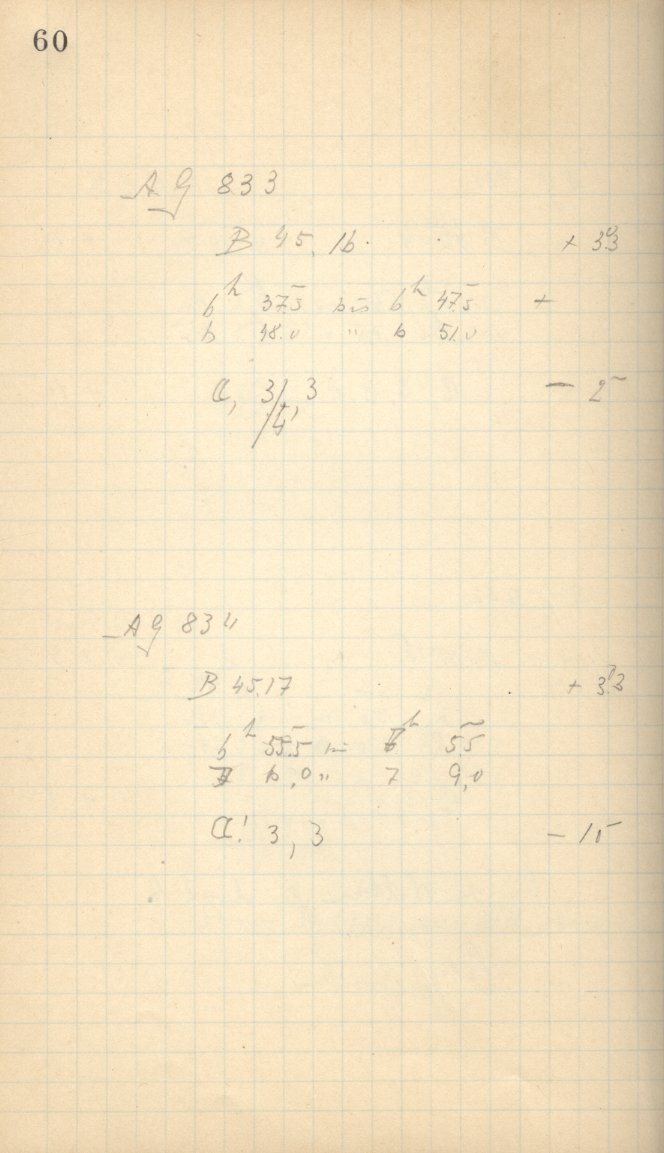 60
AG 833
B 45, 16. + 3.3
6h 37.5 bis 6h 47.5 +
6 48.0 " 6 51.0
a, 3/4, 3 - 2
AG 834
B 45.17 + 3.3
6h 55.5 h 5.5
7 6,0 " 7 9,0
a! 3, 3 - 15